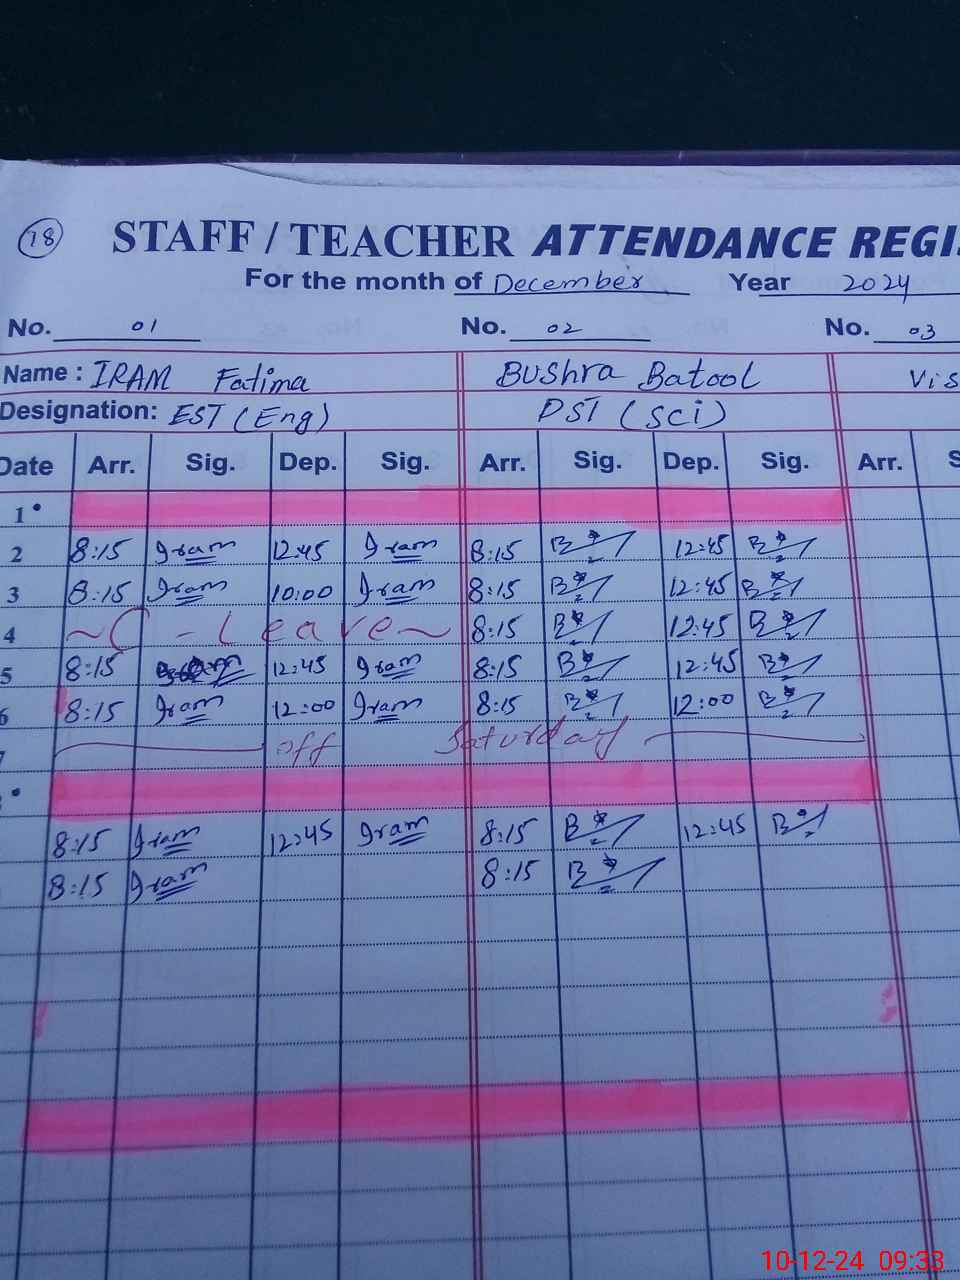 18
STAFF / TEACHER ATTENDANCE REGI
For the month of December Year 2024
No. 01 No. 02 No. 03
Name : IRAM Fatima BUShra Batool Vis
Designation: EST (Eng) PST (SCi)
Date Arr. Sig. Dep. Sig. Arr. Sig. Dep. Sig. Arr. S
1
2 8:15 Iram 12:45 Iram 8:15 B 12:45 B
3 8:15 Iram 10:00 Iram 8:15 B 12:45 B
4 ~ C - Leave ~ 8:15 B 12:45 B
5 8:15 12:45 Iram 8:15 B 12:45 B
6 8:15 Iram 12:00 Iram 8:15 B 12:00 B
7 off Saturday
8:15 Iram 12:45 Iram 8:15 B 12:45 B
8:15 Iram 8:15 B
10-12-24 09:33